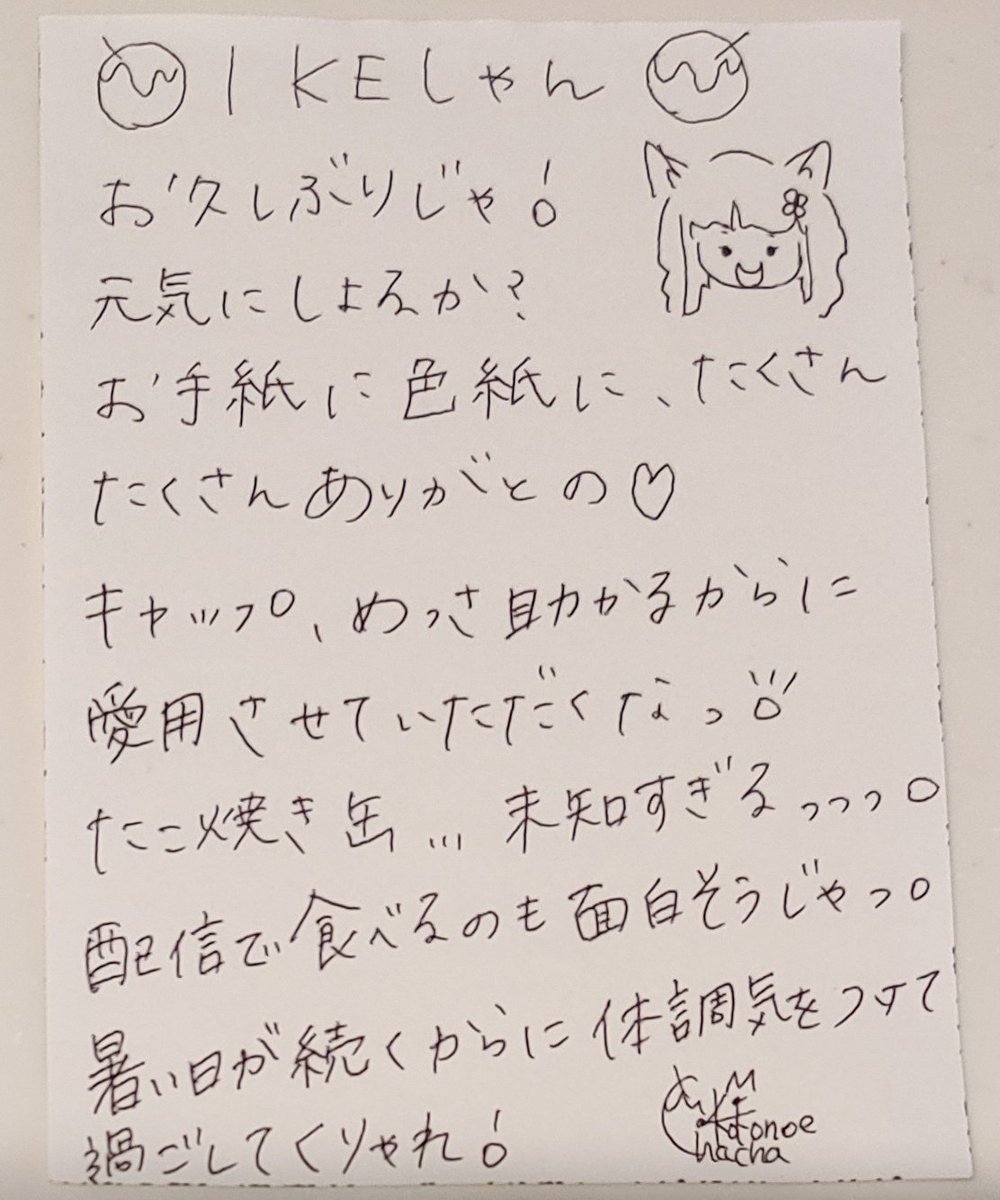 IKEしゃん
お久しぶりじゃ!
元気にしよるか?
お手紙に色紙に、たくさん
たくさんありがとの♡
キャップ、めっさ助かるからに
愛用させていただくなっ
たこ焼き缶…未知すぎるっっっ。
配信で食べるのも面白そうじゃっ。
暑い日が続くからに体調気をつけて
過ごしてくりゃれ!
Kotonoe
Chacha